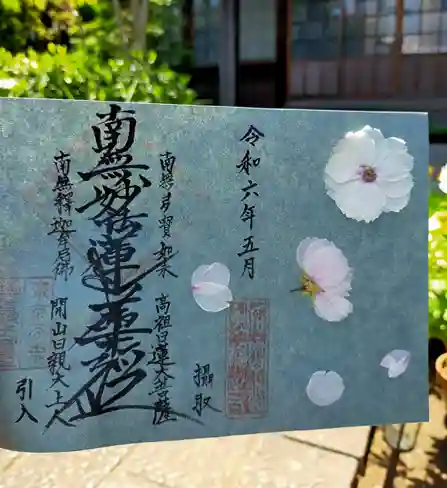 令和六年五月
南無多寶如来
高祖日蓮大菩薩
攝取
南無妙法蓮華経
南無釋迦牟尼佛
開山日親大上人
引入